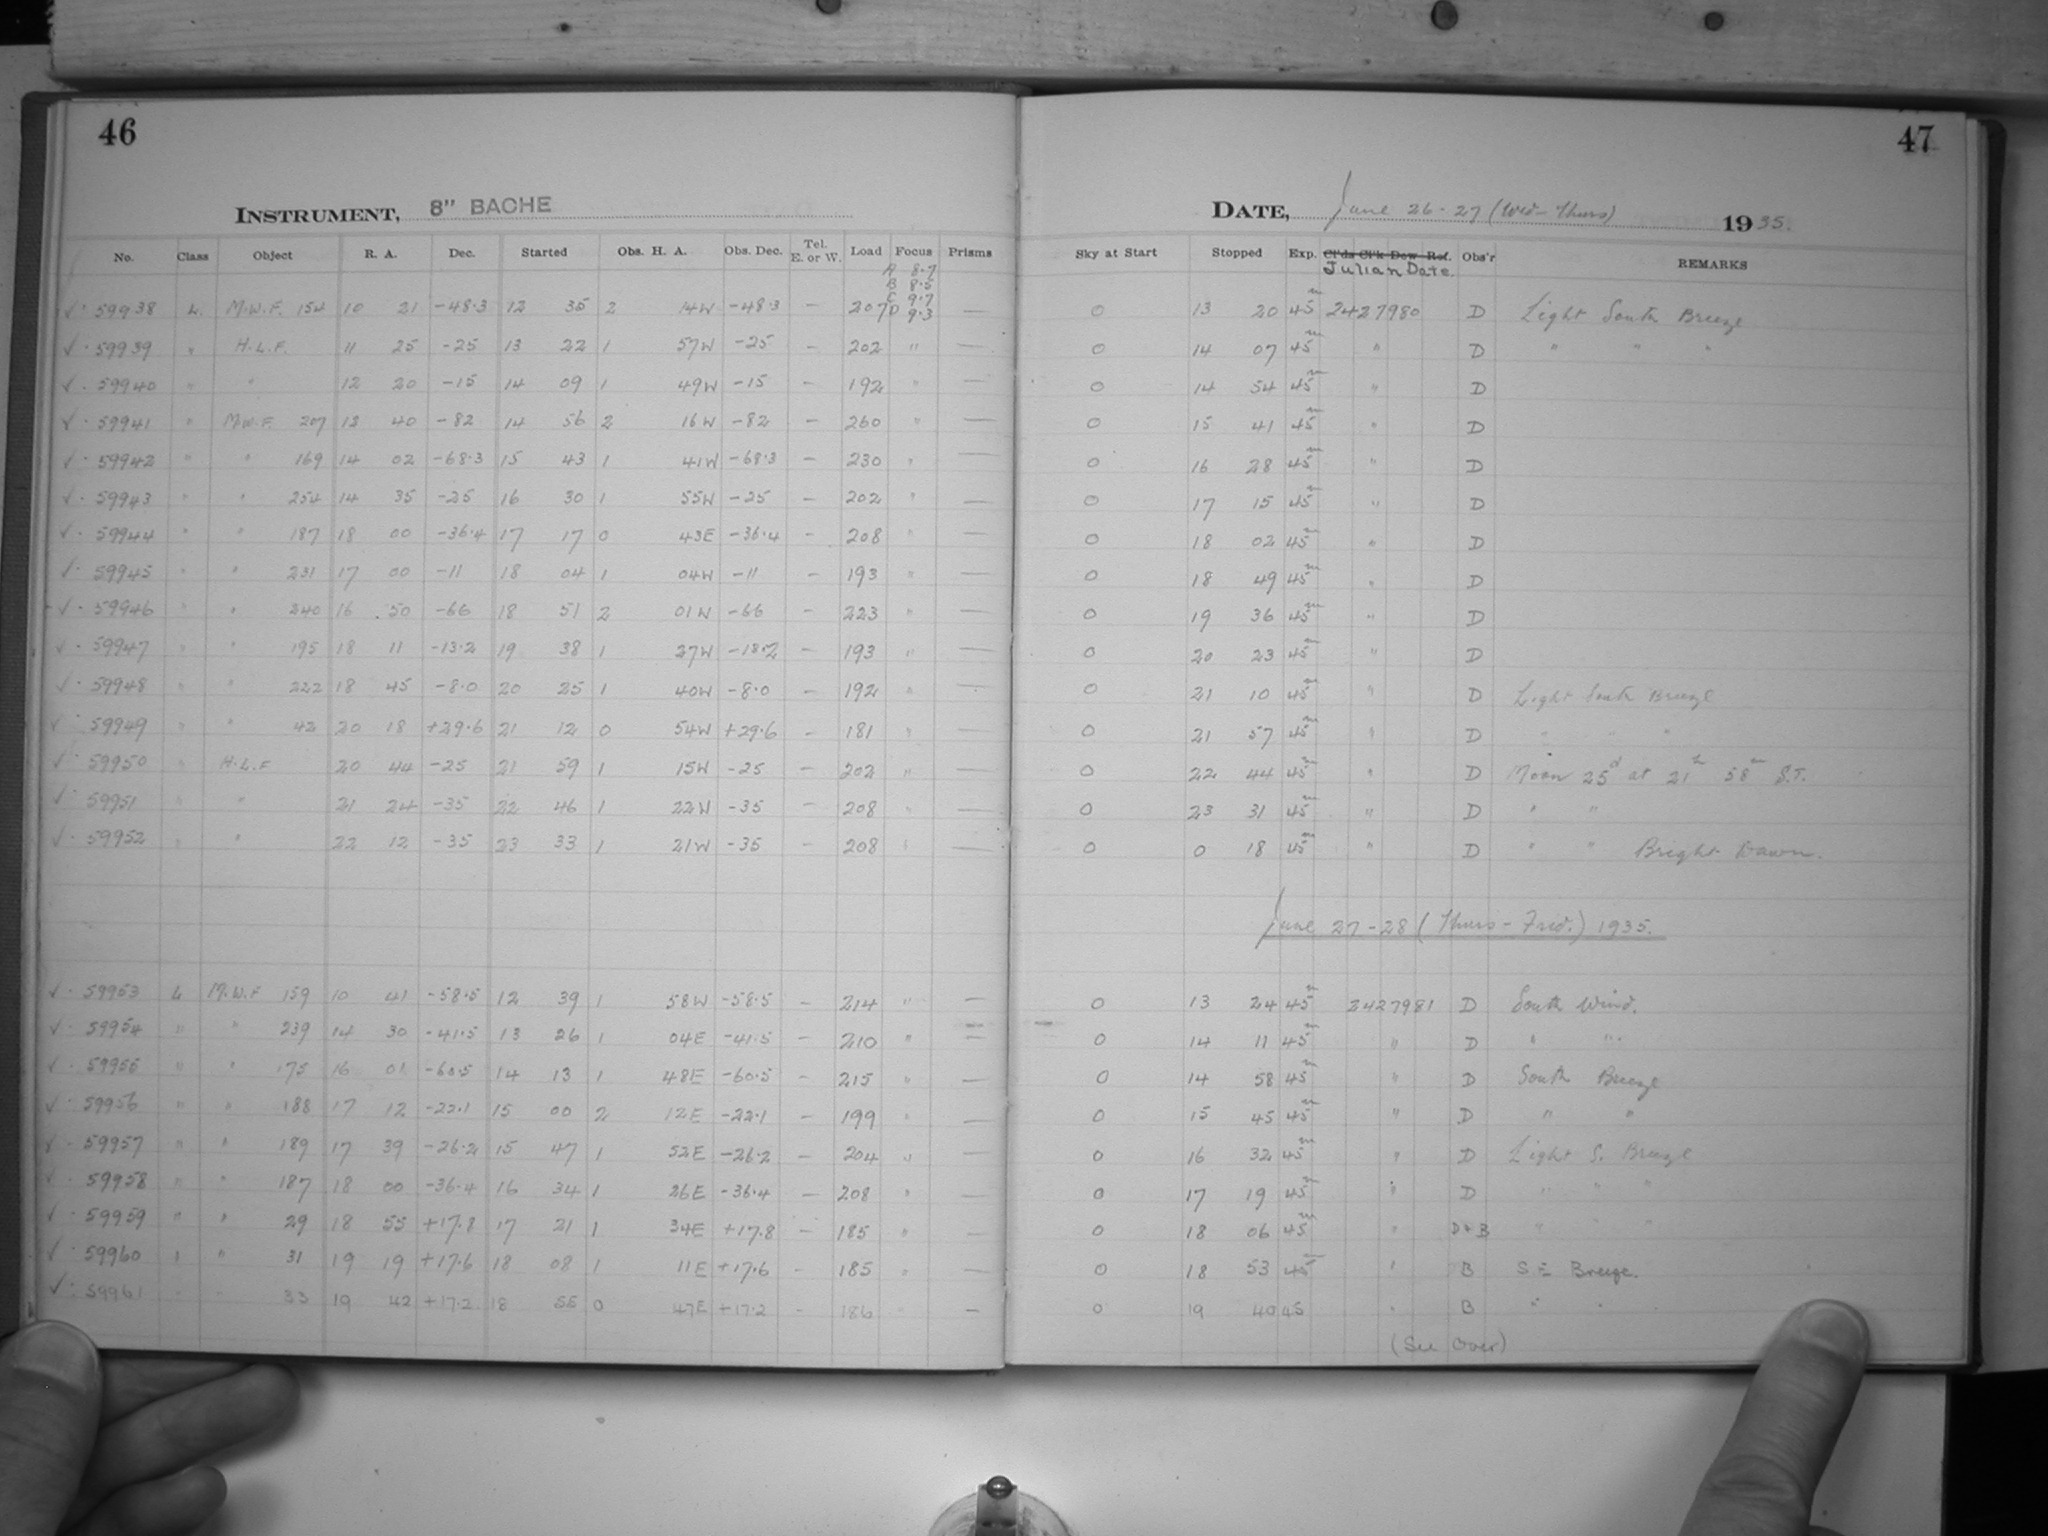 46
47
INSTRUMENT, 8" BACHE
DATE, June 26-27 (Wed-Thurs) 1935.
No. Class Object R. A. Dec. Started Obs. H. A. Obs. Dec. Tel. E. or W. Load Focus Prisms Sky at Start Stopped Exp. Cl'ds Cl'k Dew Ref. Obs'r REMARKS
Julian Date.
A 8.7
B 8.5
C 9.7
D 9.3
✓ · 59938 L M.W.F. 154 10 21 -48.3 12 35 2 14W -48.3 — 207 — 0 13 20 45m 2427980 D Light South Breeze
✓ · 59939 " H.L.F. 11 25 -25 13 22 1 57W -25 — 202 " — 0 14 07 45m " D " " "
✓ · 59940 " " 12 20 -15 14 09 1 49W -15 — 192 " — 0 14 54 45m " D
✓ · 59941 " M.W.F. 207 13 40 -82 14 56 2 16W -82 — 260 " — 0 15 41 45m " D
✓ · 59942 " " 169 14 02 -68.3 15 43 1 41W -68.3 — 230 " — 0 16 28 45m " D
✓ · 59943 " " 254 14 35 -25 16 30 1 55W -25 — 202 " — 0 17 15 45m " D
✓ · 59944 " " 187 18 00 -36.4 17 17 0 43E -36.4 — 208 " — 0 18 02 45m " D
✓ · 59945 " " 231 17 00 -11 18 04 1 04W -11 — 193 " — 0 18 49 45m " D
✓ · 59946 " " 240 16 50 -66 18 51 2 01W -66 — 223 " — 0 19 36 45m " D
✓ · 59947 " " 195 18 11 -13.2 19 38 1 27W -13.2 — 193 " — 0 20 23 45m " D
✓ · 59948 " " 222 18 45 -8.0 20 25 1 40W -8.0 — 192 " — 0 21 10 45m " D Light South Breeze
✓ · 59949 " " 42 20 18 +29.6 21 12 0 54W +29.6 — 181 " — 0 21 57 45m " D " " "
✓ · 59950 " H.L.F 20 44 -25 21 59 1 15W -25 — 202 " — 0 22 44 45m " D Moon 25d at 21h 58m S.T.
✓ · 59951 " " 21 24 -35 22 46 1 22W -35 — 208 " — 0 23 31 45m " D " "
✓ · 59952 " " 22 12 -35 23 33 1 21W -35 — 208 " — 0 0 18 45m " D " " Bright Dawn.
June 27-28 (Thurs-Frid.) 1935.
✓ · 59953 L M.W.F 159 10 41 -58.5 12 39 1 58W -58.5 — 214 " — 0 13 24 45m 2427981 D South Wind.
✓ · 59954 " " 239 14 30 -41.5 13 26 1 04E -41.5 — 210 " — 0 14 11 45m " D " "
✓ · 59955 " " 175 16 01 -60.5 14 13 1 48E -60.5 — 215 " — 0 14 58 45m " D South Breeze
✓ · 59956 " " 188 17 12 -22.1 15 00 2 12E -22.1 — 199 " — 0 15 45 45m " D " "
✓ · 59957 " " 189 17 39 -26.2 15 47 1 52E -26.2 — 204 " — 0 16 32 45m " D Light S. Breeze
✓ · 59958 " " 187 18 00 -36.4 16 34 1 26E -36.4 — 208 " — 0 17 19 45m " D " " "
✓ · 59959 " " 29 18 55 +17.8 17 21 1 34E +17.8 — 185 " — 0 18 06 45m " D+B " " "
✓ · 59960 " " 31 19 19 +17.6 18 08 1 11E +17.6 — 185 " — 0 18 53 45m " B SE Breeze.
✓ · 59961 " " 33 19 42 +17.2 18 55 0 47E +17.2 — 186 " — 0 19 40 45 " B " "
(See Over)